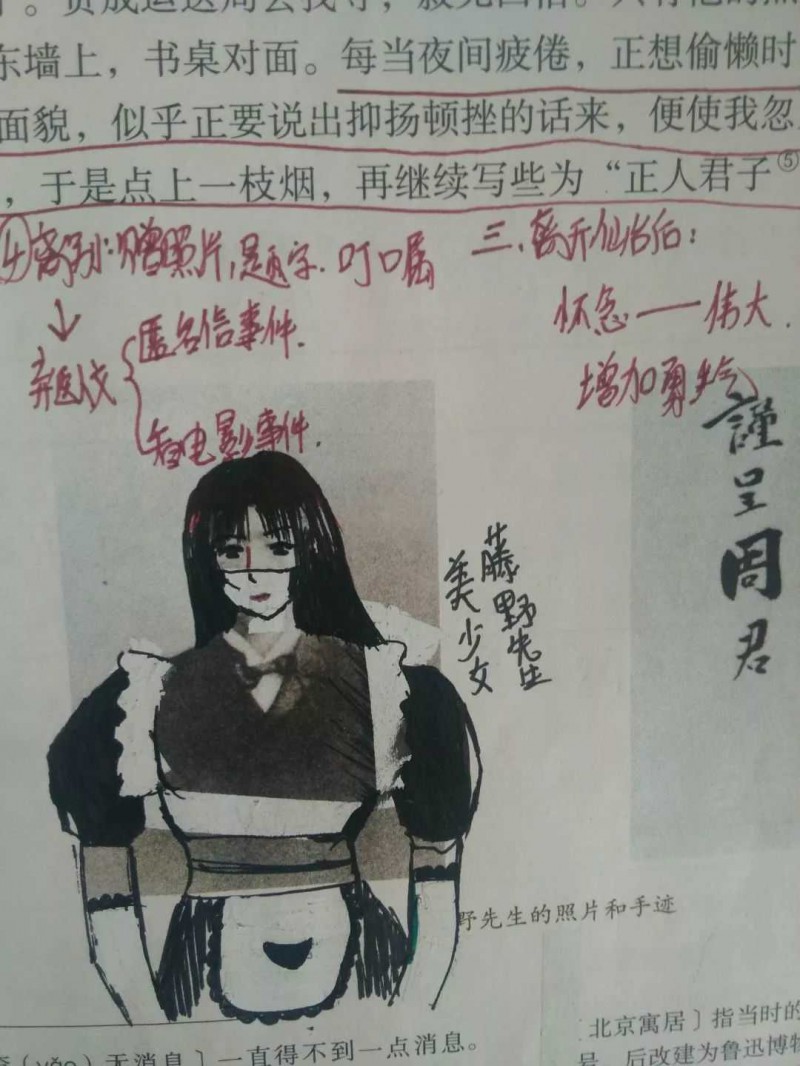 东墙上，书桌对面。每当夜间疲倦，正想偷懒时
面貌，似乎正要说出抑扬顿挫的话来，便使我忽
，于是点上一枝烟，再继续写些为“正人君子⑤
④离别：赠照片，题字，叮嘱
弃医从
匿名信事件．
看电影事件．
三、离开仙台后：
怀念——伟大．
增加勇气
謹呈周君
藤野先生
美少女
野先生的照片和手迹
〔北京寓居〕指当时的
号，后改建为鲁迅博物
（yǎo）无消息〕一直得不到一点消息。